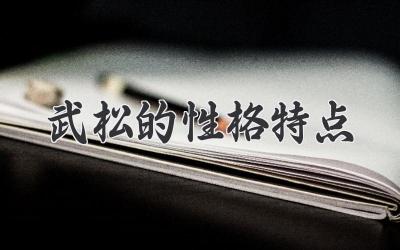 武松的性格特点